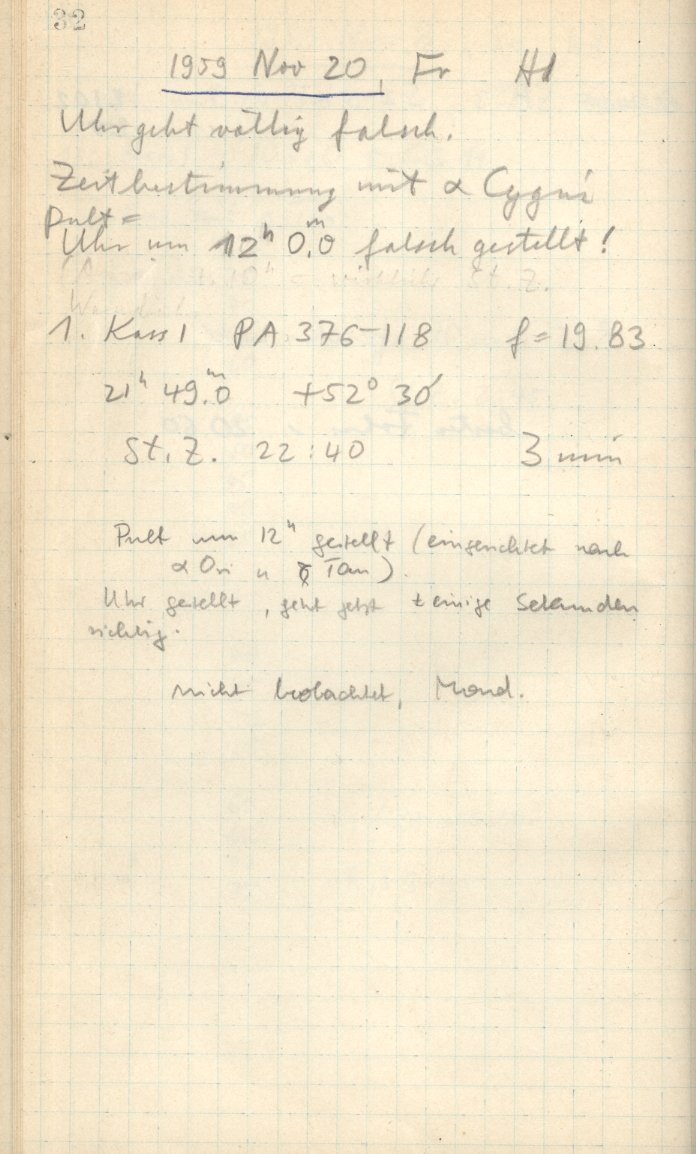 32
1959 Nov 20, Fr
Uhr geht völlig falsch.
Zeitbestimmung mit α Cygni
Pult=
Uhr um 12ʰ 0.ᵐ0 falsch gestellt!
St.Z.
1. Kass 1 PA 376-118 f=19.83
21ʰ 49.ᵐ0 +52° 30'
St.Z. 22:40 3 min
Pult um 12ʰ gestellt (eingerichtet nach
α Ori u ξ Tau).
Uhr gestellt, geht jetzt ± einige Sekunden
richtig.
nicht beobachtet, Mond.